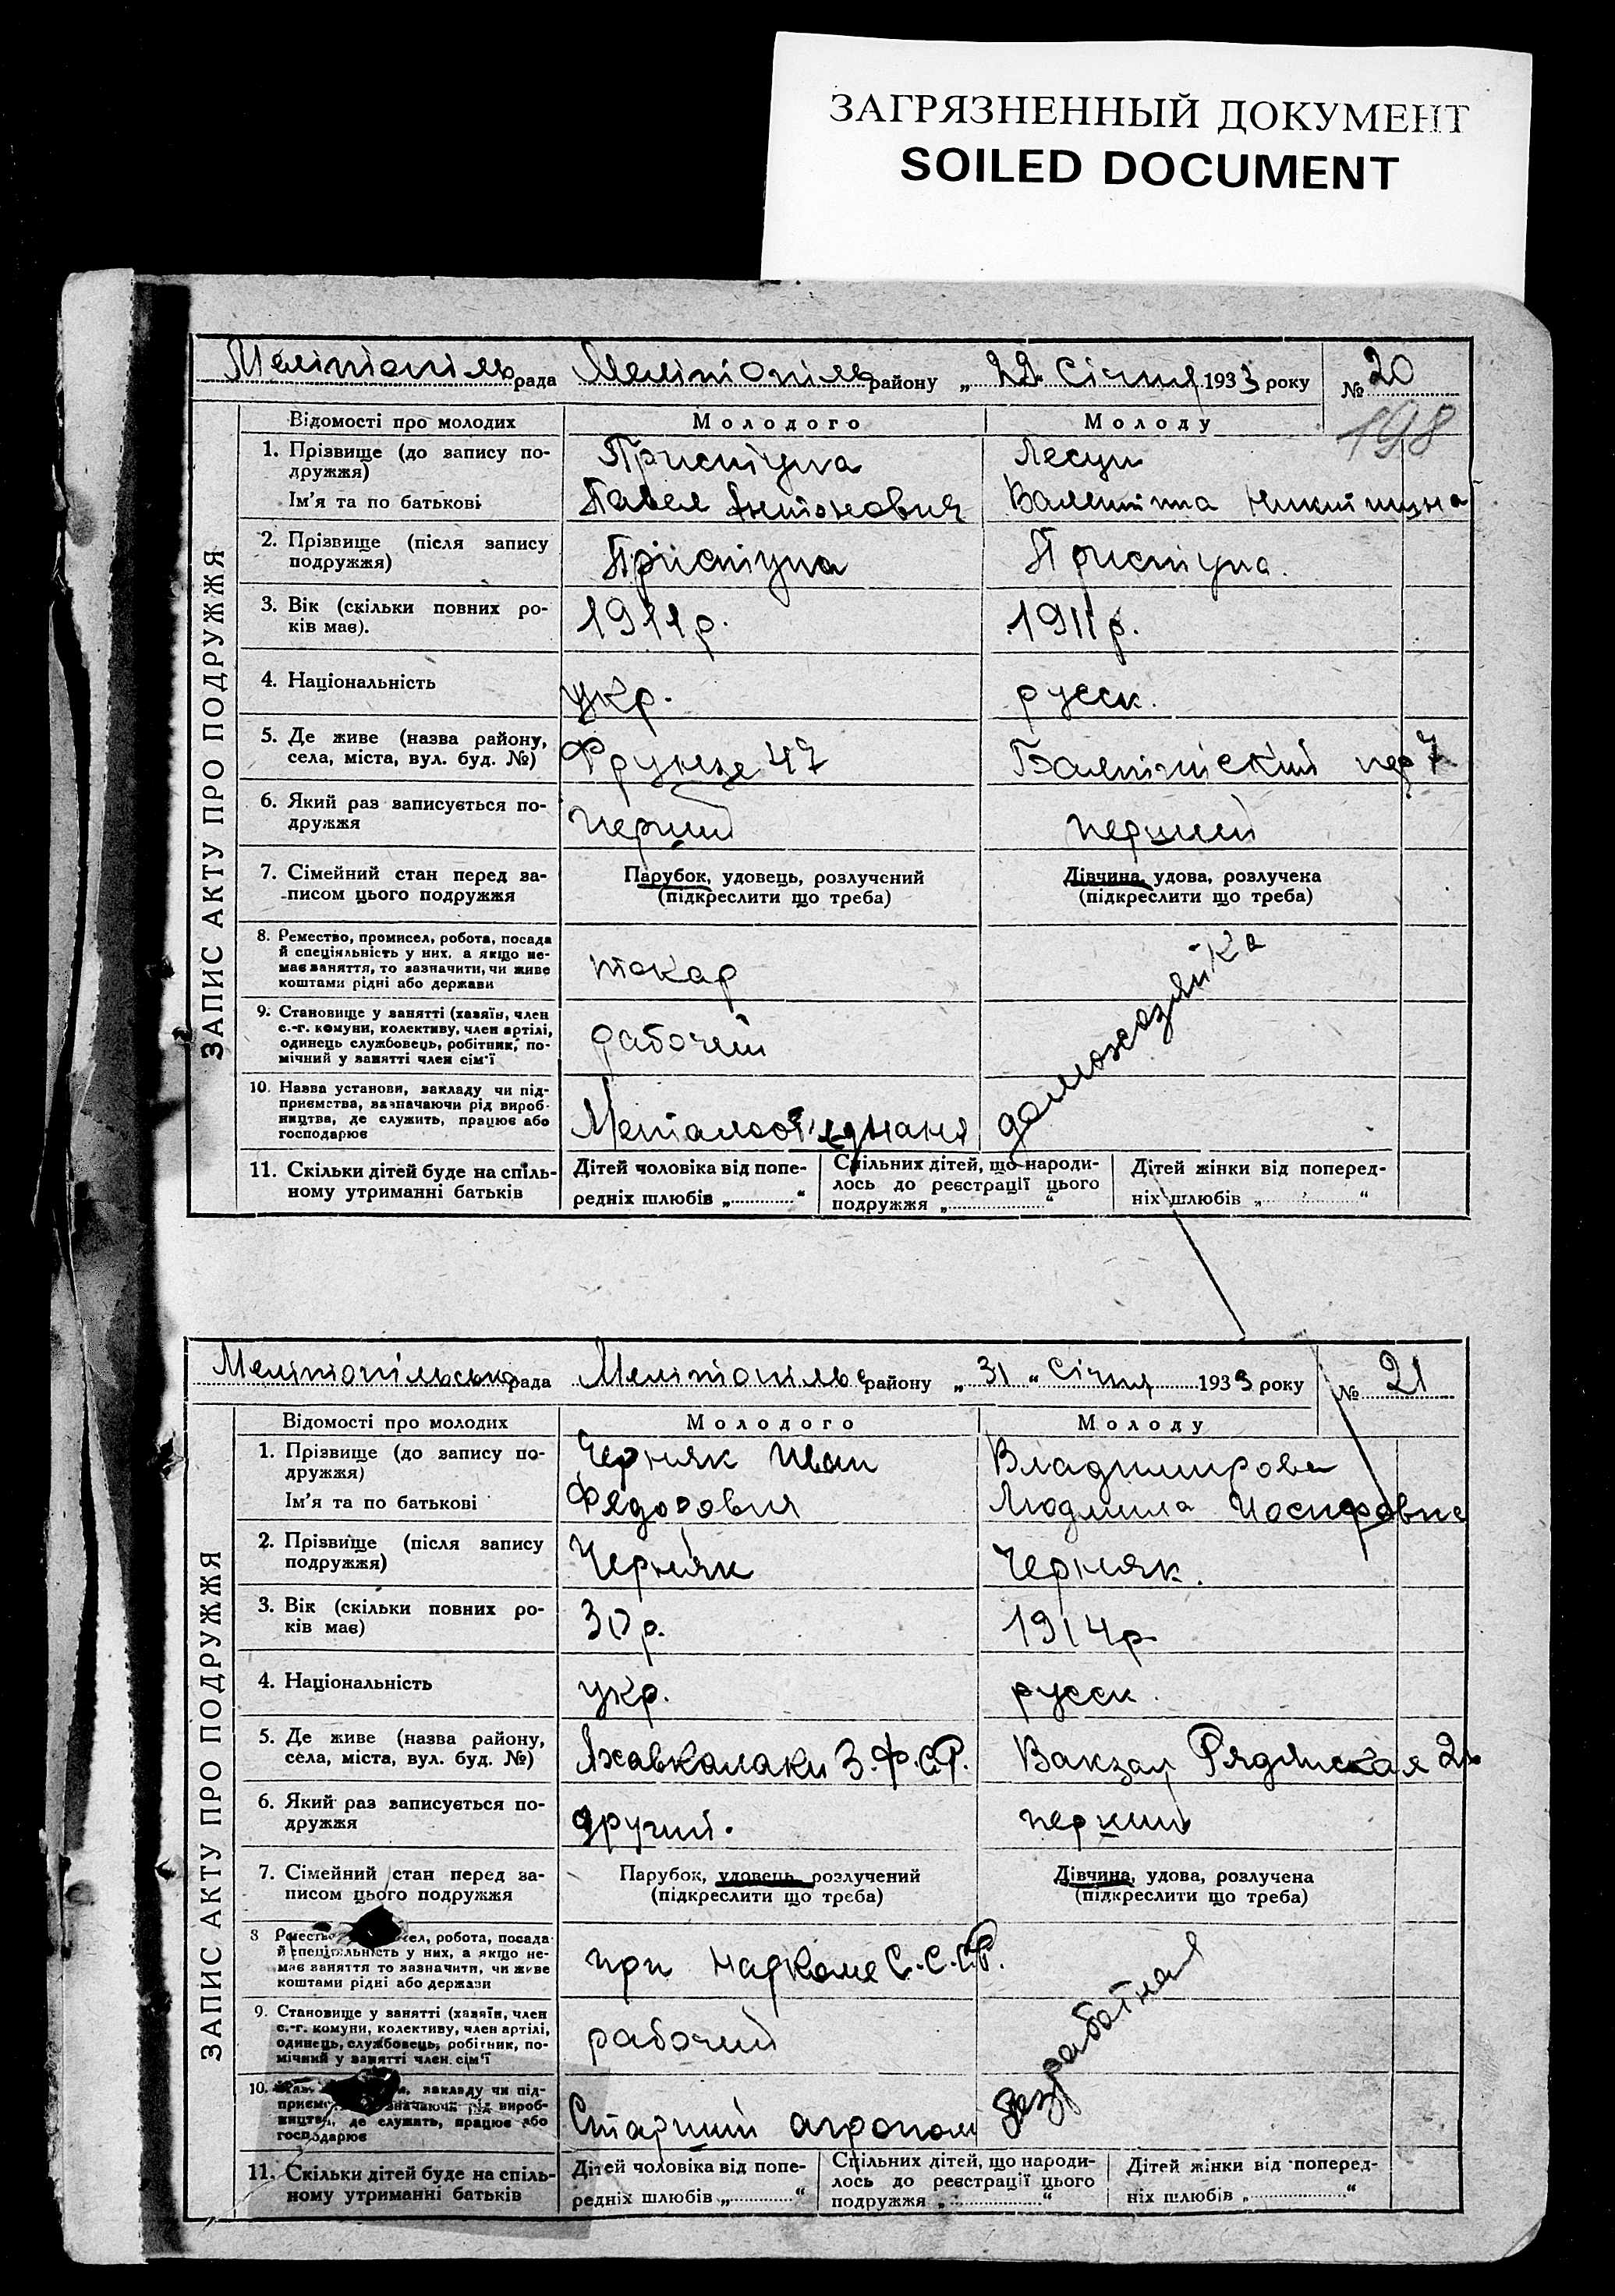 ЗАГРЯЗНЕННЫЙ ДОКУМЕНТ
SOILED DOCUMENT
Мелітопіль рада Мелітопіль району „ 22 Січня 1933 року № 20
198
ЗАПИС АКТУ ПРО ПОДРУЖЖЯ
Відомості про молодих Молодого Молоду
1. Прізвище (до запису по- Приступа Лесун
дружжя)
Ім'я та по батькові Павел Антонович Валентина
2. Прізвище (після запису Приступа Приступа.
подружжя)
3. Вік (скільки повних ро- 1911 р. 1911 р.
ків має).
4. Національність укр. русск.
5. Де живе (назва району, Фрунзе 47 Балтійский пер 7
села, міста, вул. буд. №)
6. Який раз записується по- перший перший
дружжя
7. Сімейний стан перед за- Парубок, удовець, розлучений Дівчина, удова, розлучена
писом цього подружжя (підкреслити що треба) (підкреслити що треба)
8. Ремество, промисел, робота, посада
й спеціяльність у них, а якщо не-
має заняття, то зазначити, чи живе токар домохозяйка
коштами рідні або держави
9. Становище у занятті (хазяїн, член
с.-г. комуни, колективу, член артілі,
одинець службовець, робітник, по- рабочий
мічний у занятті член сім'ї
10. Назва установи, закладу чи під-
приємства, зазначаючи рід вироб-
ництва, де служить, працює або
господарює Металооб'єднаня
11. Скільки дітей буде на спіль- Дітей чоловіка від попе- Спільних дітей, що народи- Дітей жінки від поперед-
ному утриманні батьків редніх шлюбів „ “ лось до реєстрації цього ніх шлюбів „ “
подружжя „ “
Мелітопільська рада Мелітопільс району „ 31 “ Січня 1933 року № 21
ЗАПИС АКТУ ПРО ПОДРУЖЖЯ
Відомості про молодих Молодого Молоду
1. Прізвище (до запису по- Черняк Иван Владимирова
дружжя)
Ім'я та по батькові Федорович Людмила Иосифовна
2. Прізвище (після запису Черняк Черняк.
подружжя)
3. Вік (скільки повних ро- 30 р. 1914 р
ків має)
4. Національність укр. русск.
5. Де живе (назва району, Ахавкалаки З.Ф.С.Р. Вакзал Рядянская
села, міста, вул. буд. №)
6. Який раз записується по- другий. перший
дружжя
7. Сімейний стан перед за- Парубок, удовець, розлучений Дівчина, удова, розлучена
писом цього подружжя (підкреслити що треба) (підкреслити що треба)
8 робота, посада
й спеціяльність у них, а якщо не-
має заняття то зазначити, чи живе при Наркоме С.С.С.Р.
коштами рідні або держави
9. Становище у занятті (хазяїн, член
с.-г. комуни, колективу, член артілі,
одинець, службовець, робітник, по- рабочий безработная
мічний у занятті член сім'ї
10. закладу чи під-
рід вироб-
ництва, де служить, працює або
господарює Старший агроном
11. Скільки дітей буде на спіль- Дітей чоловіка від попе- Спільних дітей, що народи- Дітей жінки від поперед-
ному утриманні батьків редніх шлюбів „ “ лось до реєстрації цього ніх шлюбів „ “
подружжя „ “